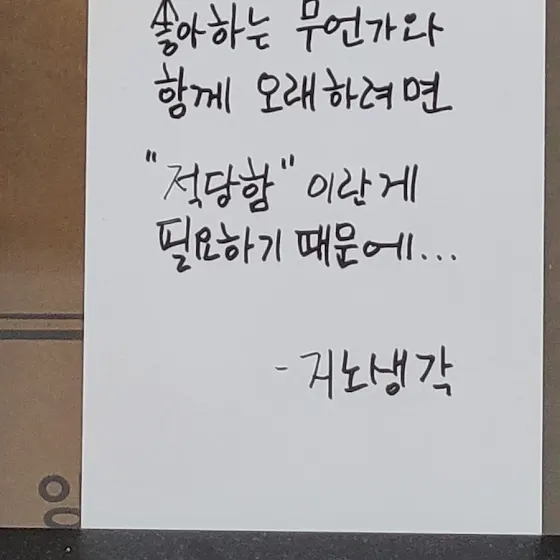 좋아하는 무언가와
함께 오래하려면
"적당함"이란게
필요하기 때문에...
- 지노생각